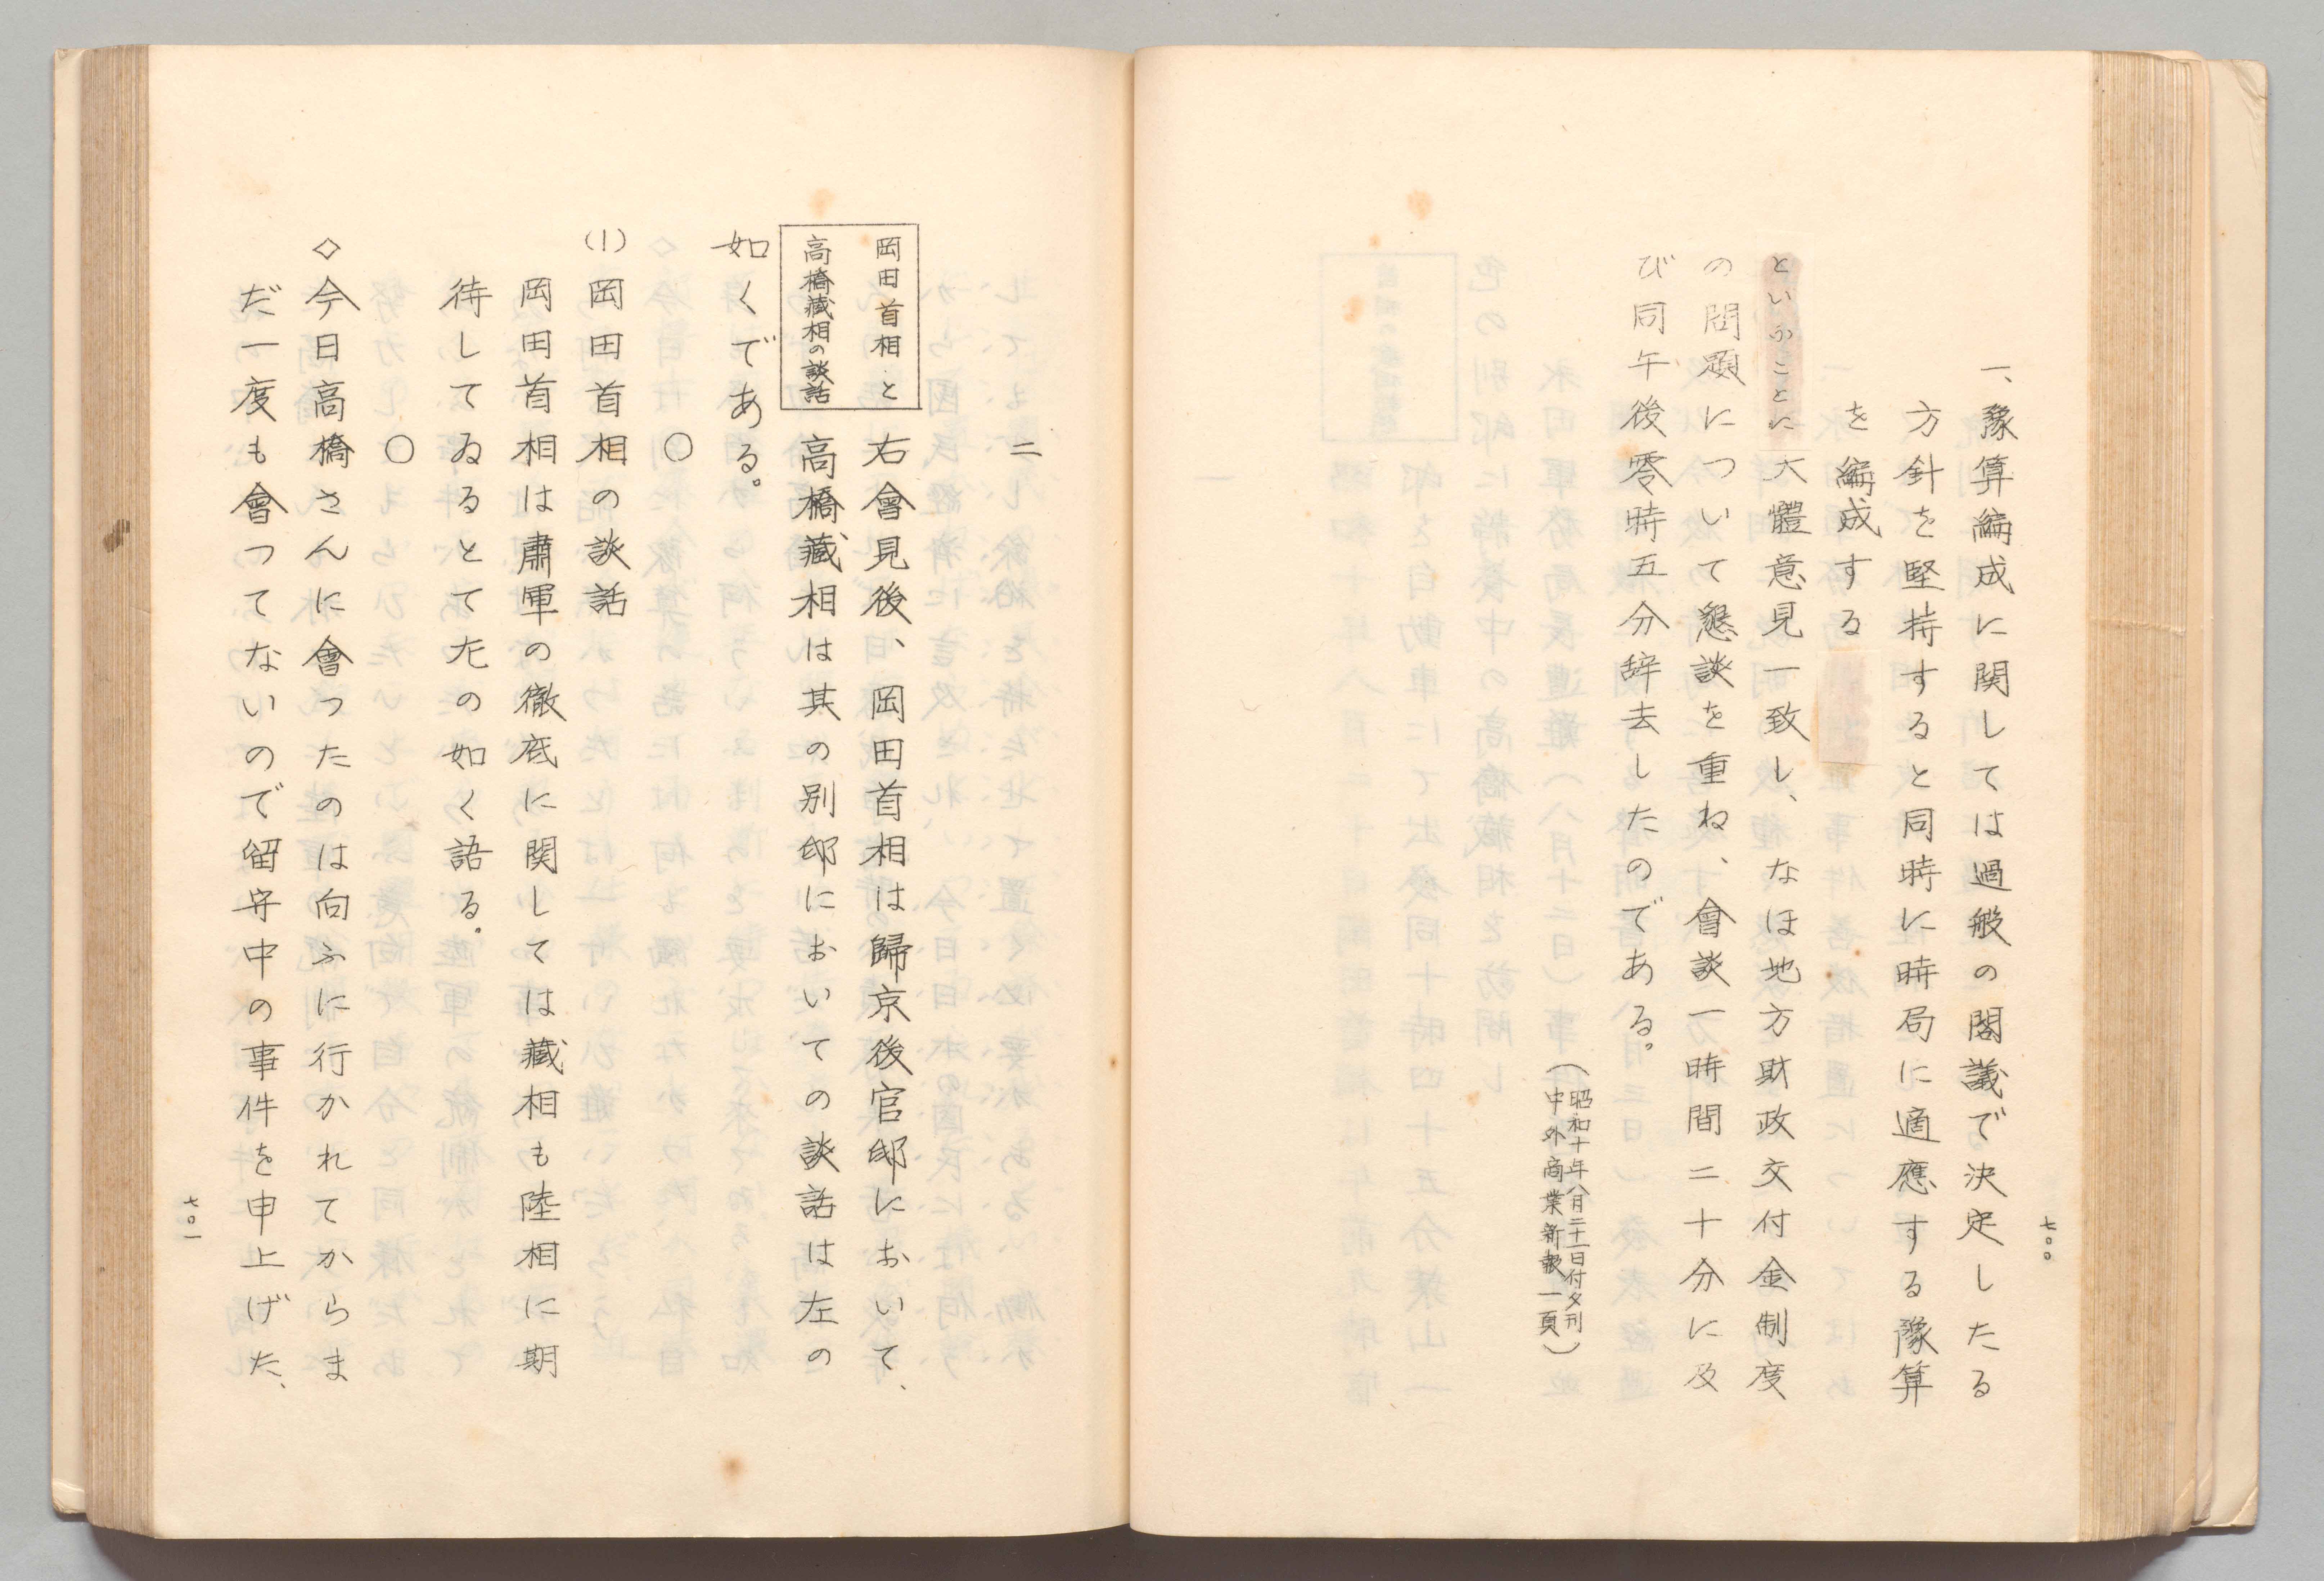 一、豫算編成に関しては過般の閣議で決定したる
方針を堅持すると同時に時局に適應する豫算
を編成する
といふことに大體意見一致し、なほ地方財政交付金制度
の問題について懇談を重ね、會談一時間二十分に及
び同午後零時五分辞去したのである。
（昭和十年八月二十一日付夕刊
中外商業新報一頁）
七〇〇
二
岡田首相と
高橋藏相の談話
右會見後、岡田首相は歸京後官邸において、
高橋藏相は其の別邸においての談話は左の
如くである。
〇
(1)岡田首相の談話
岡田首相は肅軍の徹底に関しては藏相も陸相に期
待してゐるとて左の如く語る。
〇
◇今日高橋さんに會つたのは向ふに行かれてからま
だ一度も會つてないので留守中の事件を申上げた、
七〇一